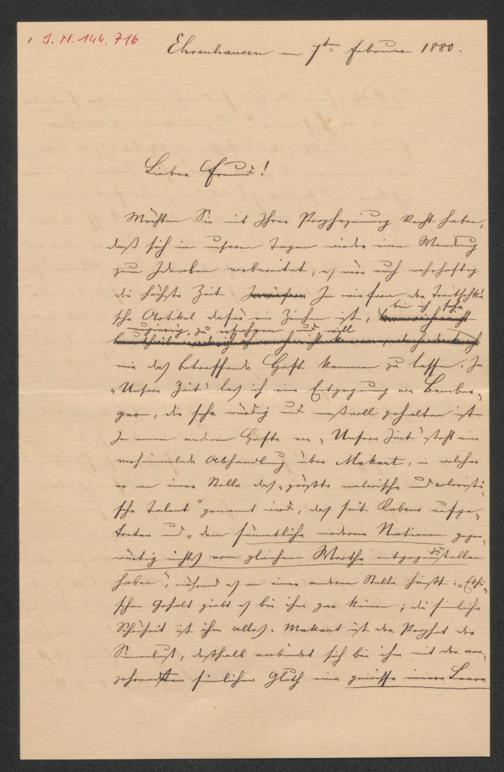 J. N. 144.716
Ehrenhausen am 7ten Februar 1880.
Lieber Freund!
Möchten Sie mit Ihrer Prophezeiung Recht haben,
daß sich in unseren Tagen wieder eine Wendung
zum Idealen vorbereitet, es wäre auch wahrhaftig
die höchste Zeit. In wie fern der Treitschki
sche Artikel dafür ein Zeichen ist, bin ich
neugierig zu erfahren und will
mir das betreffende Heft kommen zu lassen. In
„Unsere Zeit" las ich eine Entgegnung von Bamber-
ger, die sehr würdig und maßvoll gehalten ist.
In einem andern Hefte von „Unsere Zeit" steht eine
Abhandlung über Makart, in welcher
er an einer Stelle das „größte malerische und coloristi-
sche Talent" genannt wird, das seit Rubens aufge-
treten und „dem sämmtliche moderne Nationen gegen-
wärtig nichts vom gleichen Werthe entgegenzustellen
haben", während es an einer anderen Stelle heißt: „Ethi-
schen Gehalt giebt es bei ihm gar keinen; die sinnliche
Schönheit ist ihm alles. Makart ist der Prophet der
Sinnlust, deßhalb verbindet sich bei ihm mit der
sinnlichen Gluth eine gewisse innere Leere